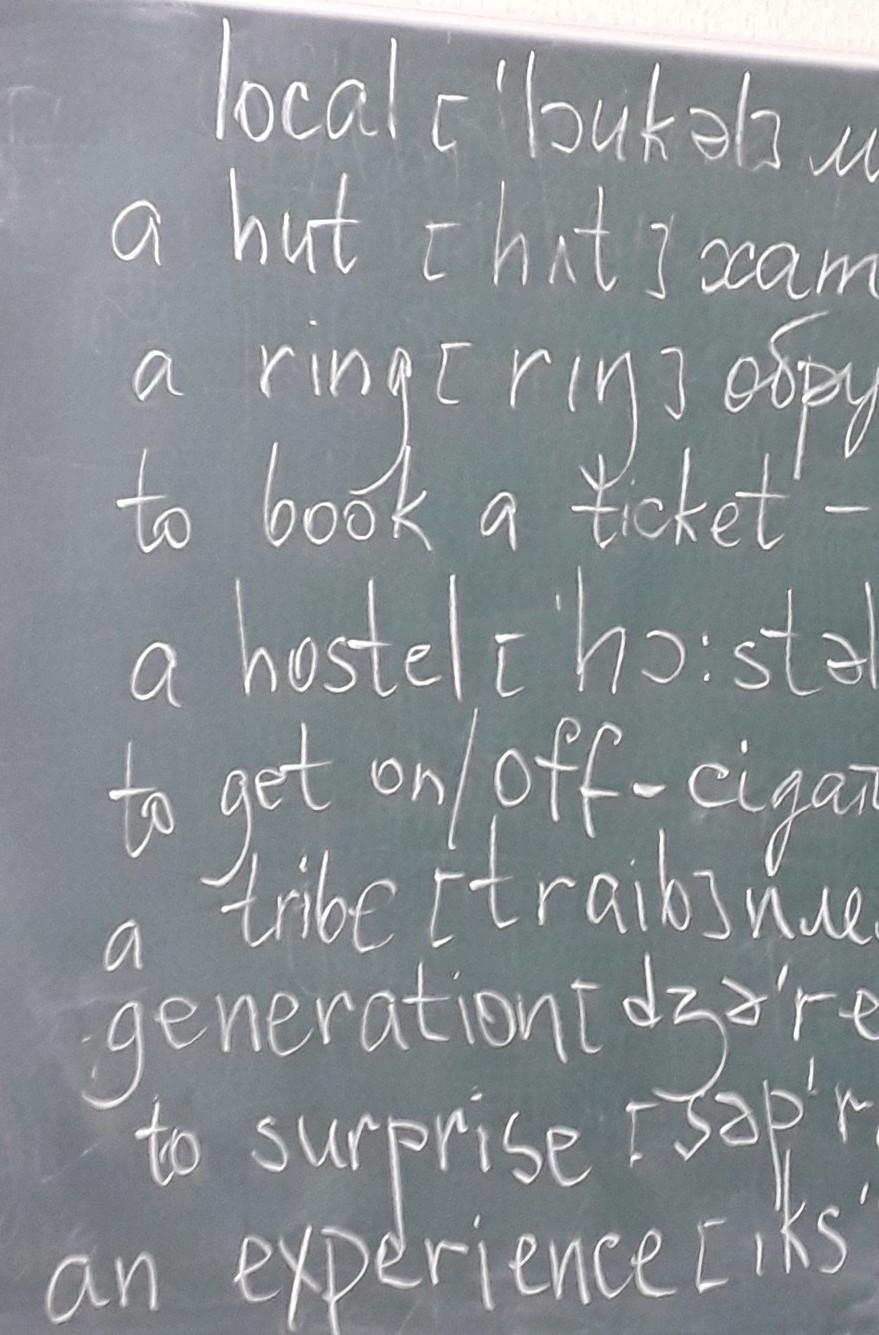 local ['lɔukəl] м
a hut [hʌt] хат
a ring [rɪŋ] обру
to book a ticket -
a hostel ['hɔ:stəl
to get on/off - сідат
a tribe [traib] пле
generation [dʒə're
to surprise [səp'r
an experience [ıks'